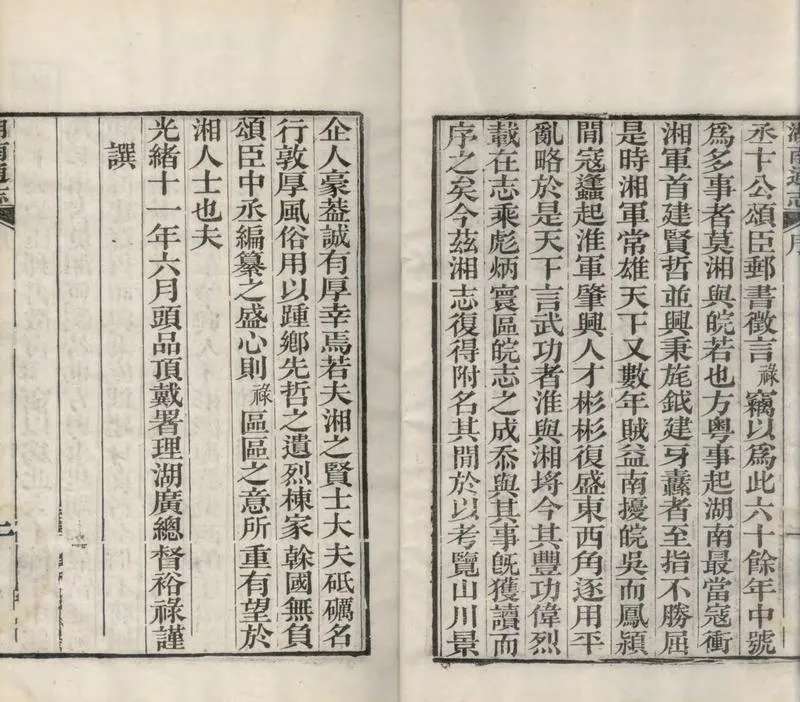 湖南通志
序
丞卞公頌臣郵書徵言祿竊以為此六十餘年中號
為多事者莫湘與皖若也方粵事起湖南最當寇衝
湘軍首建賢哲並興秉旄鉞建牙纛者至指不勝屈
是時湘軍常雄天下又數年賊益南擾皖吳而鳳潁
間寇蠭起淮軍肇興人才彬彬復盛東西角逐用平
亂略於是天下言武功者淮與湘埒今其豐功偉烈
載在志乘彪炳寰區皖志之成忝與其事旣獲讀而
序之矣今茲湘志復得附名其間於以考覽山川景
企人豪葢誠有厚幸焉若夫湘之賢士大夫砥礪名
行敦厚風俗用以踵鄉先哲之遺烈棟家榦國無負
頌臣中丞編纂之盛心則祿區區之意所重有望於
湘人士也夫
光緒十一年六月頭品頂戴署理湖廣總督裕祿謹
譔
湖南通志